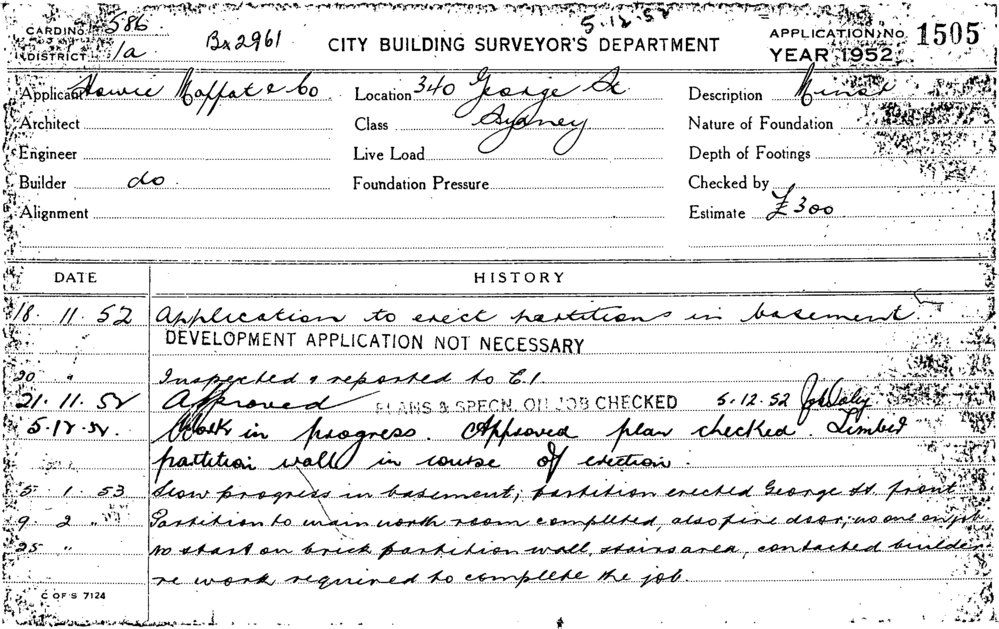 5.12.52
CARD No. 586
DISTRICT 1a
Bx2961
CITY BUILDING SURVEYOR'S DEPARTMENT
APPLICATION No. 1505
YEAR 1952
Applicant Howie Moffat & Co
Location 340 George St
Description Minor
Architect
Class Sydney
Nature of Foundation
Engineer
Live Load
Depth of Footings
Builder do.
Foundation Pressure
Checked by
Alignment
Estimate £300
DATE HISTORY
18. 11. 52 Application to erect partitions in basement
DEVELOPMENT APPLICATION NOT NECESSARY
20 " Inspected & reported to C.I.
21. 11. 52 Approved PLANS & SPECN. ON JOB CHECKED 5.12.52
5.12.52. Work in progress. Approved plan checked. Timber
partition wall in course of erection.
5. 1. 53 Slow progress in basement; partition erected George St. front
9. 2 " Partition to main work room completed, also fire door; no one on job
25 " no start on brick partition wall, stairs area, contacted builder
re work required to complete the job.
C OF S 7124